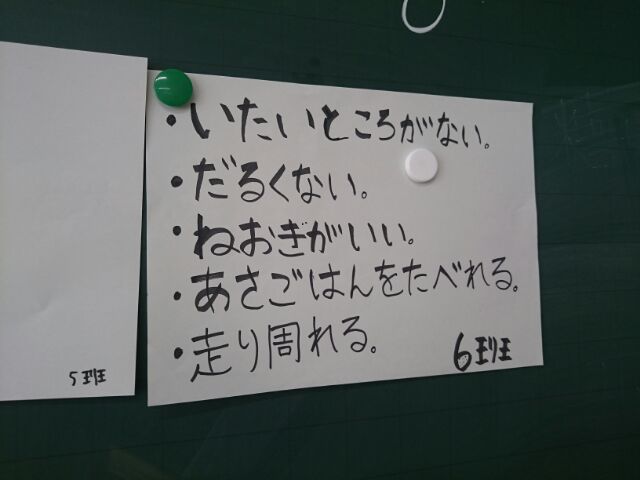 ・いたいところがない。
・だるくない。
・ねおきがいい。
・あさごはんをたべれる。
・走り周れる。
6班
5班